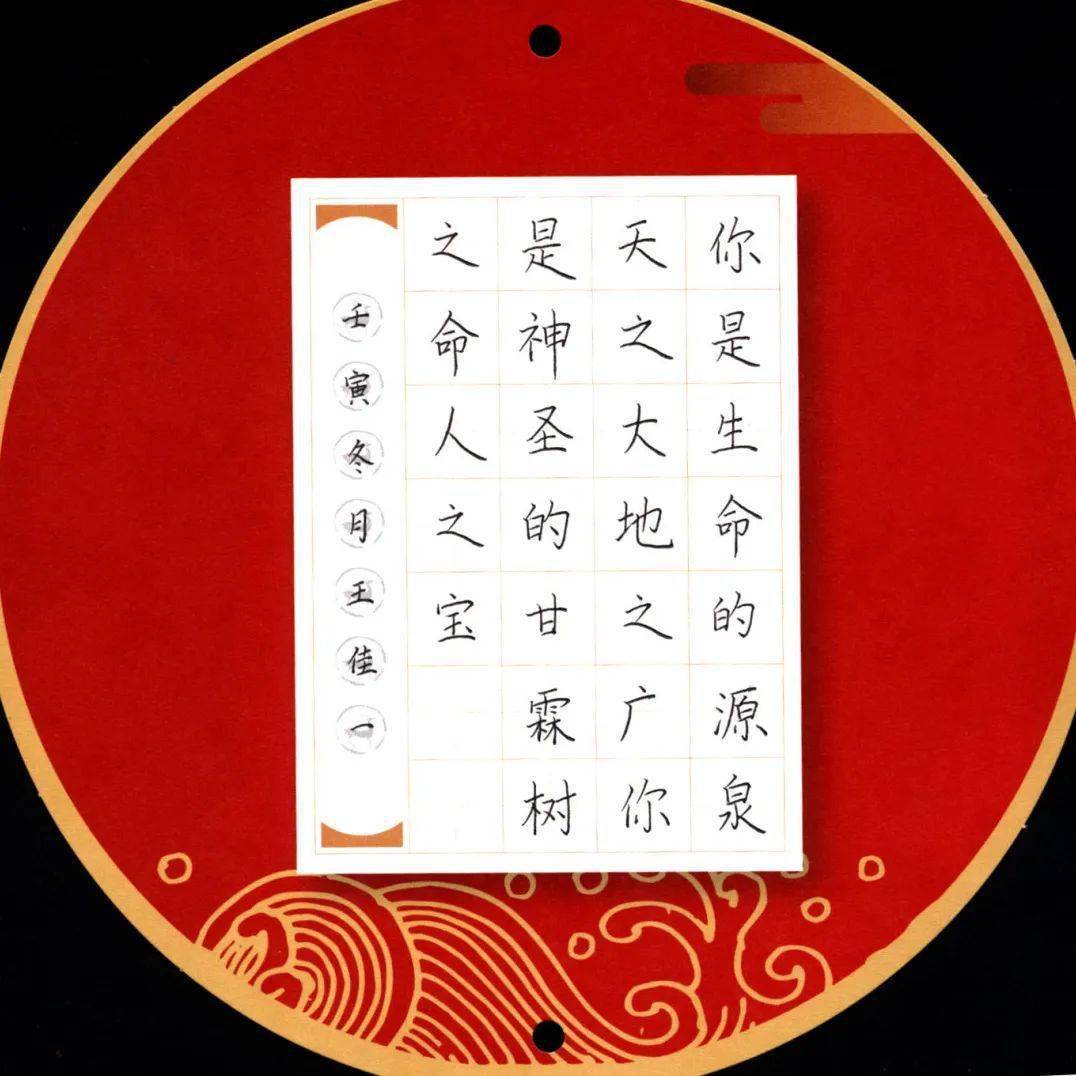 你是生命的源泉
天之大地之广你
是神圣的甘霖树
之命人之宝
壬寅冬月王佳一